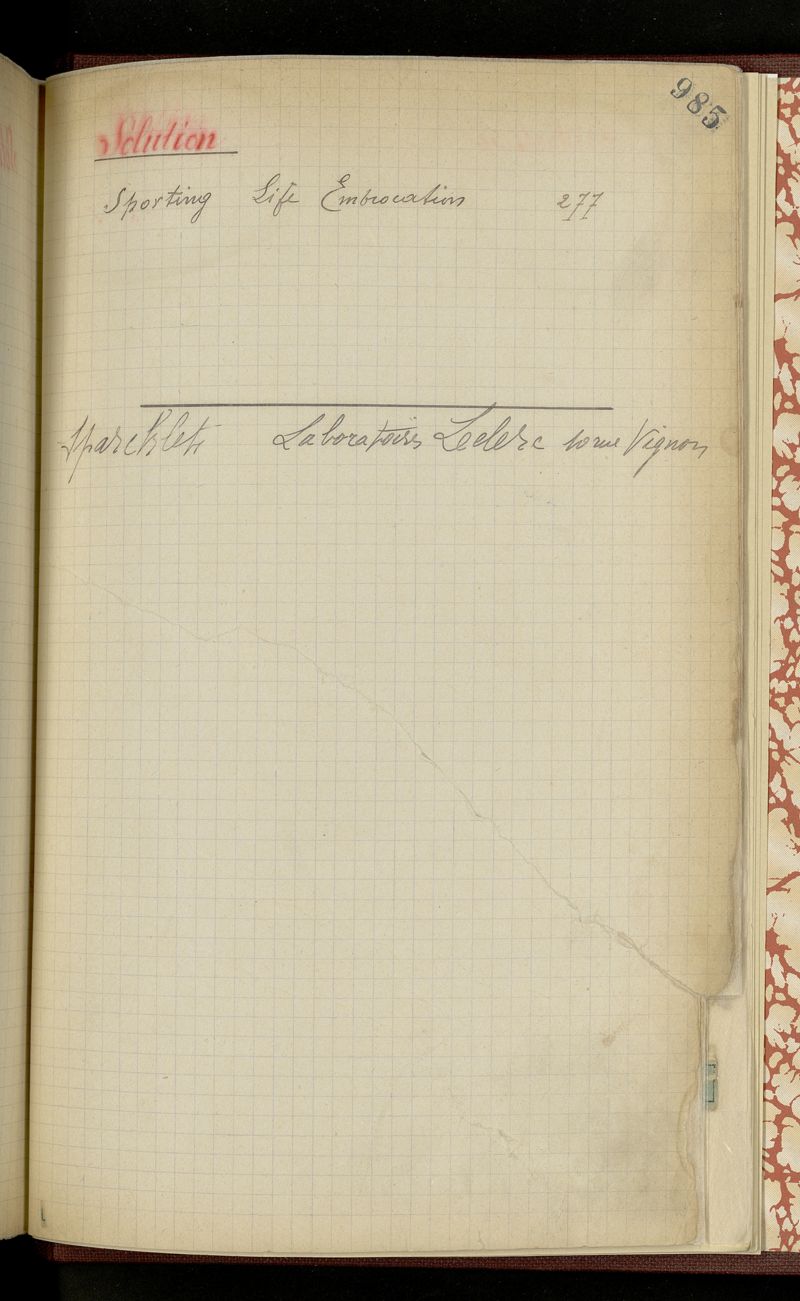 985
Solution
Sporting Life Embrocation 277
Sparcklets Laboratoires Leclerc 10 rue Vignon